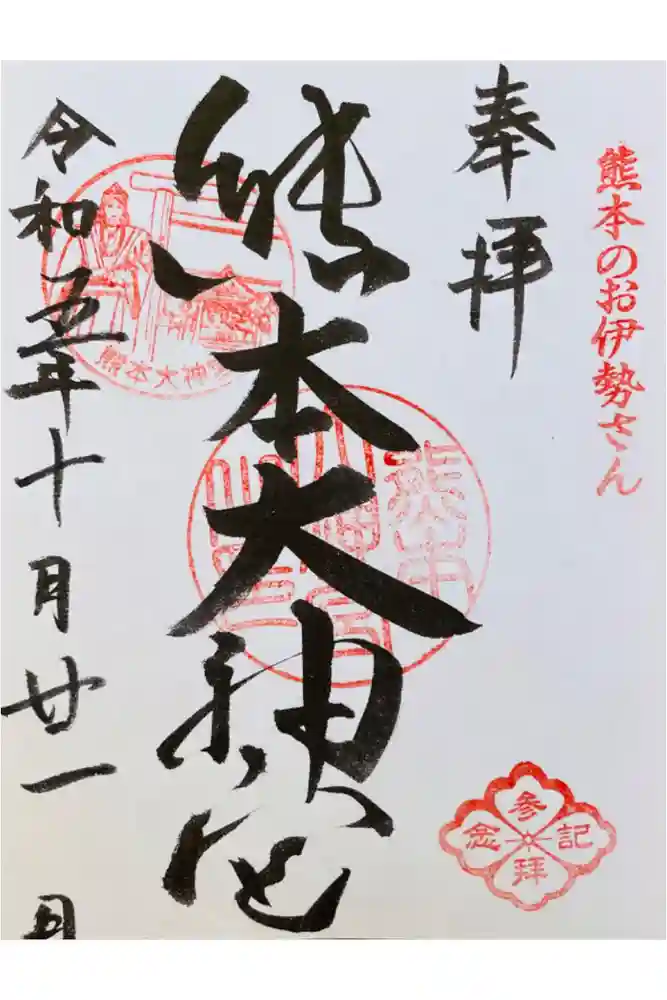 熊本のお伊勢さん
奉拝
熊本大神宮
熊本大神宮
令和五年十月廿一日
参拝記念